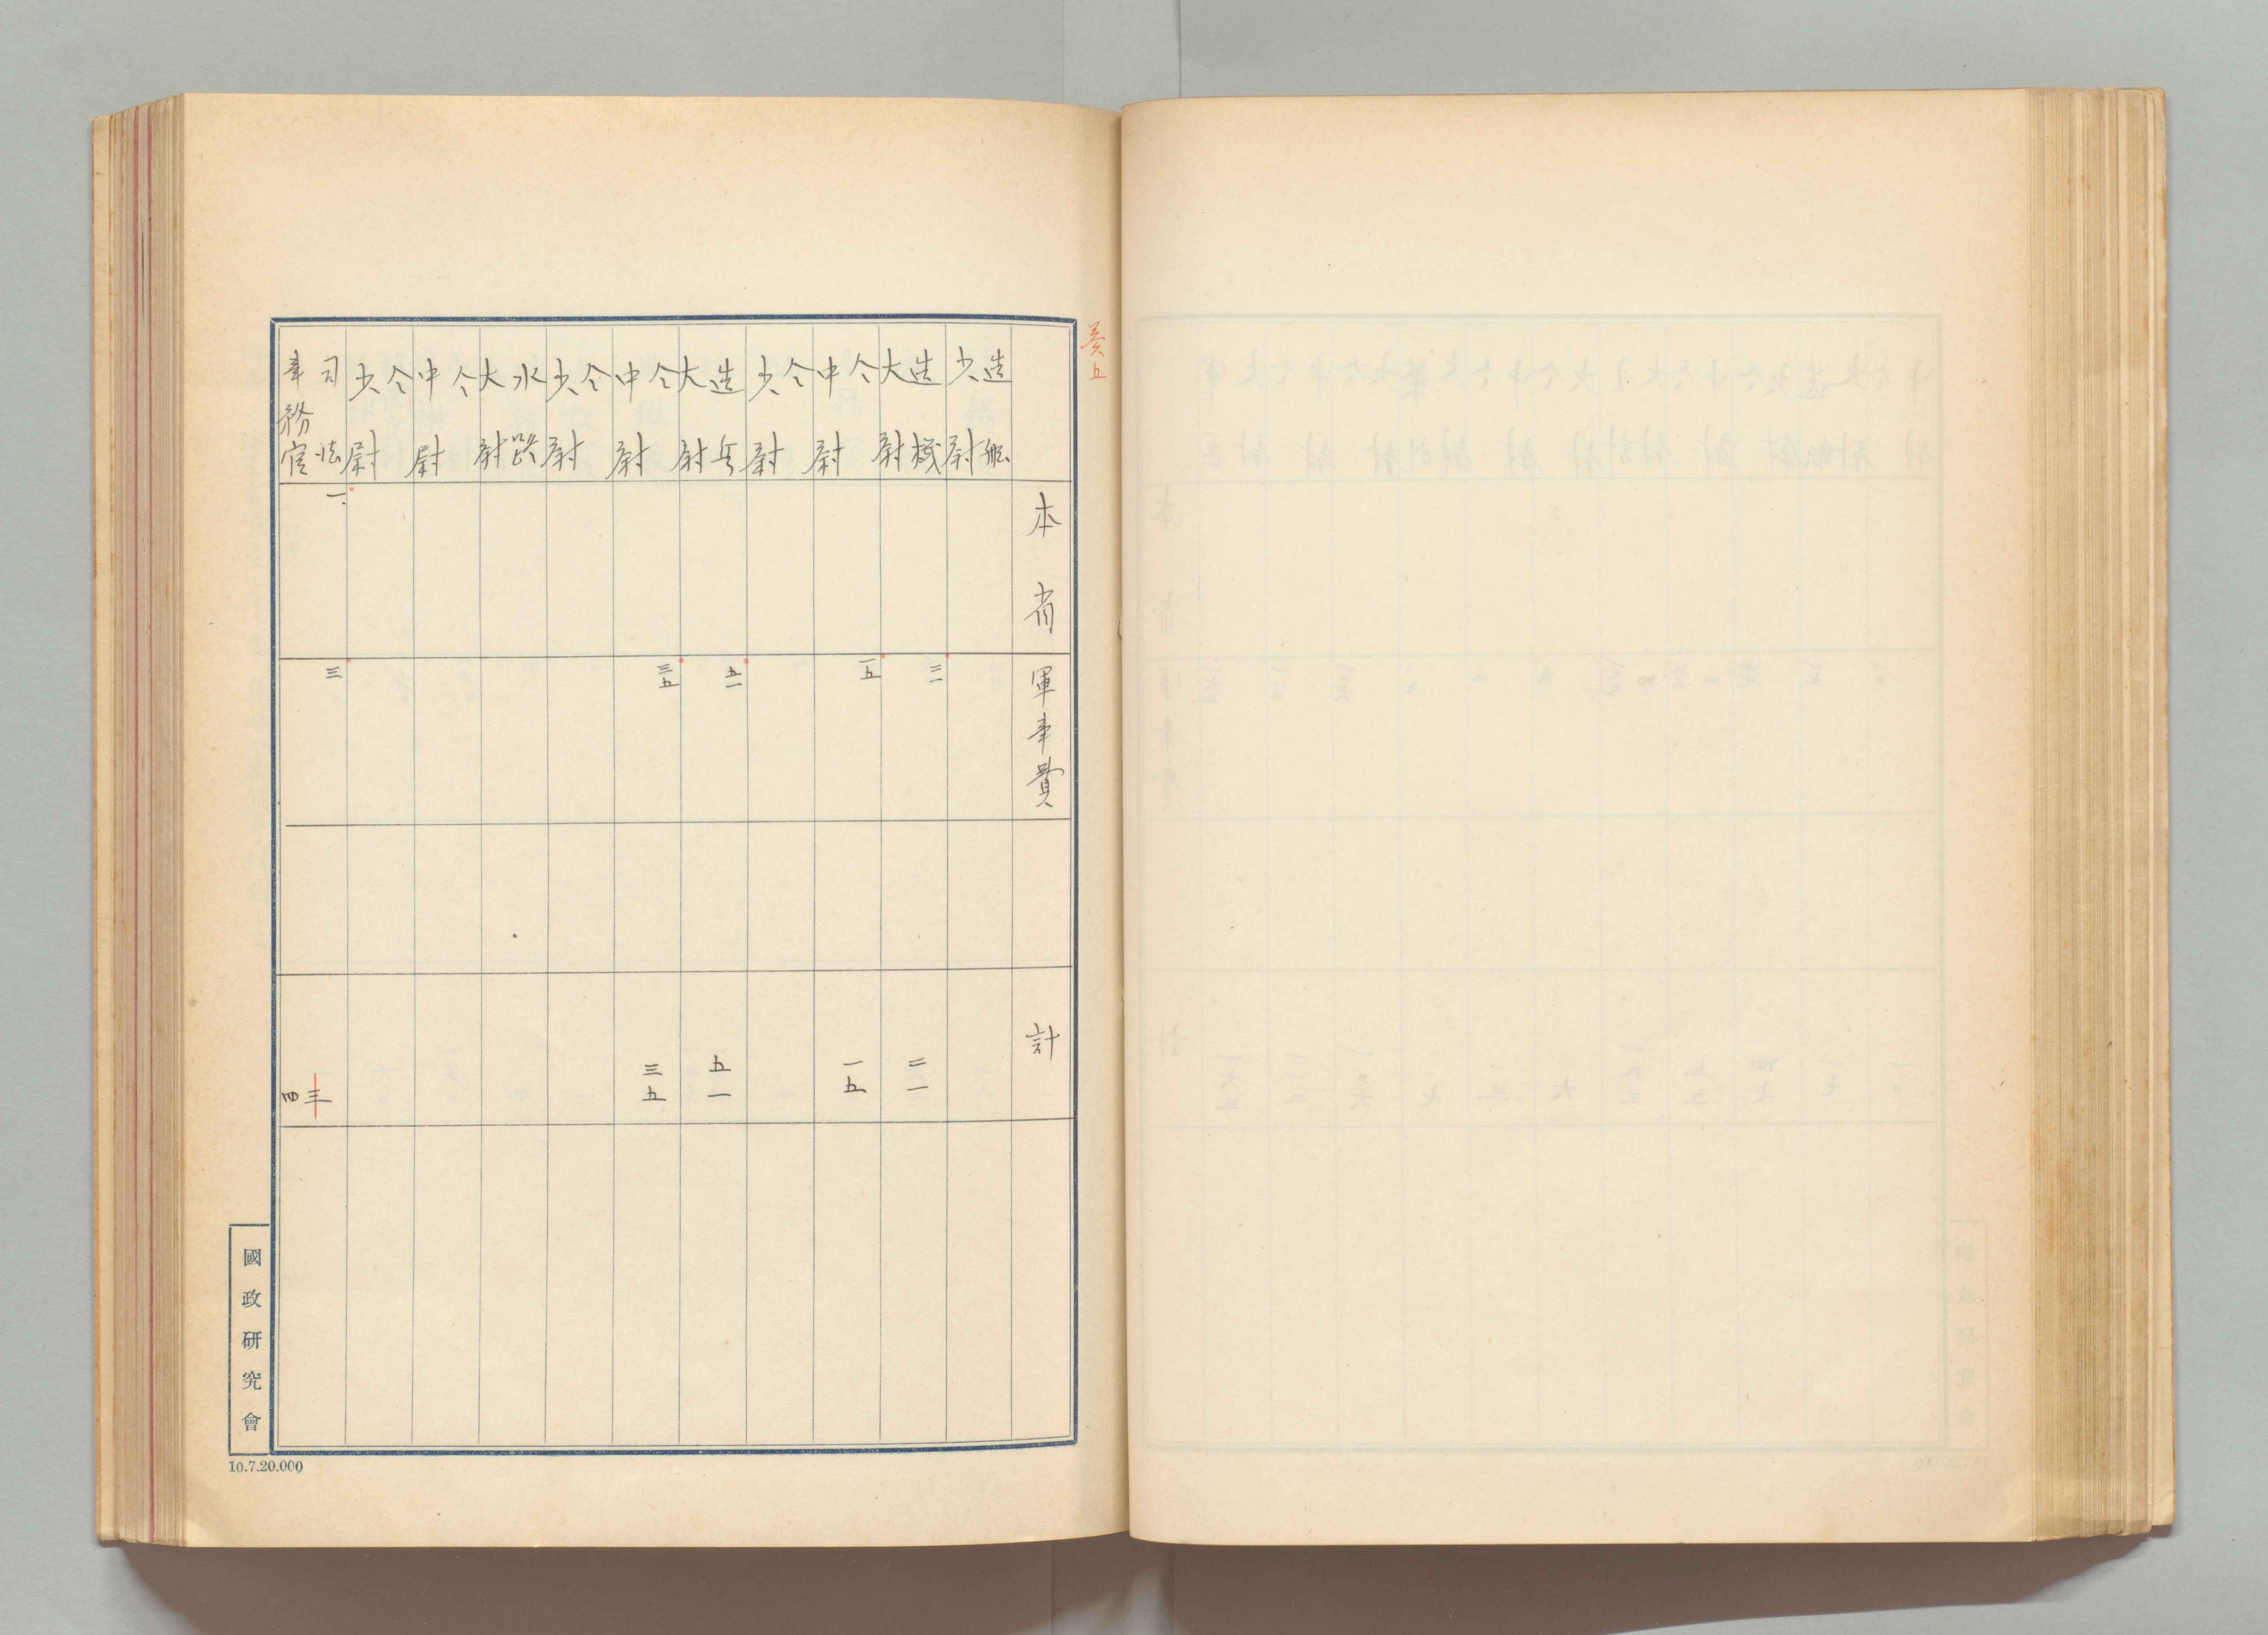 本省
軍事費
計
造船少尉
造機大尉
二一
二一
仝中尉
一五
一五
仝少尉
造兵大尉
五一
五一
仝中尉
三五
三五
仝少尉
水路大尉
仝中尉
仝少尉
司法事務官
一
三
三
四
國政研究會
10.7.20.000